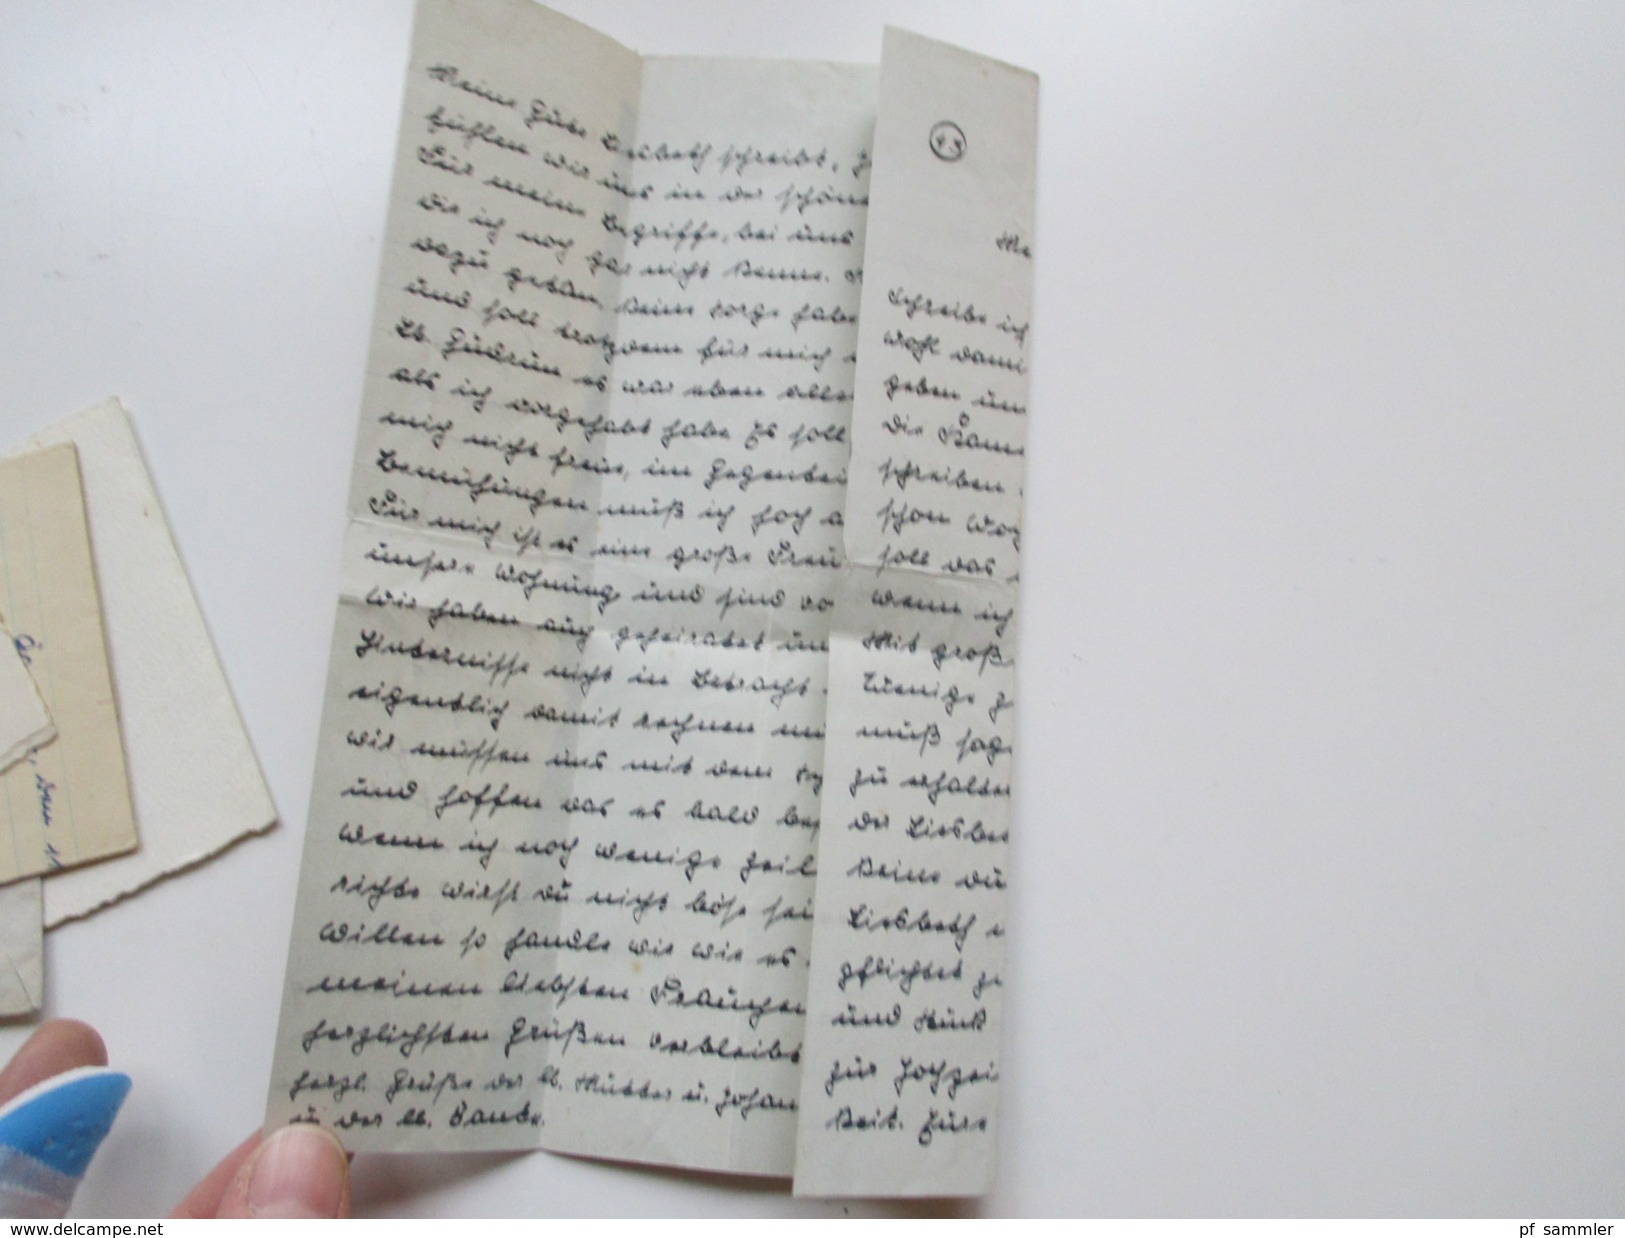 Meine gute Liesbeth schreibt,
fühlen wir uns in der schöne
Für meine Begriffe, bei uns
die ich noch gar nicht kenne.
dazu getan, keine sorge habe
und soll trotzdem für mich
Lb. Gudrun es war eben alle
als ich vorgehabt habe Es soll
mich nicht freue, im Gegentei
Bemühungen muß ich hoch a
Für mich ist es eine große Freu
unsere Wohnung und sind
wir haben auch geheiratet un
Hinternisse nicht in Betracht
eigentlich damit rechnen
wir müssen uns mit dem
und hoffen das es bald
wenn ich noch wenige Zeil
richte wirst du nicht böse sei
Willen so handle wie wie es
meinen liebsten Frauchen
herzlichsten Grüßen verbleibt
herzl. Grüße der lb. Mutter u. Johan
u der lb. Tante.
43
Me
Schreibe ich
wohl dami
geben un
die Kame
schreiben
schon Woc
soll das
wenn ich
Mit groß
wenige
muß sage
zu erhalte
der Liesbe
keine du
Liesbeth
pflichtet
und Glück
zur Hochzei
keit. Eure
den
www.delcampe.net
pf_sammler